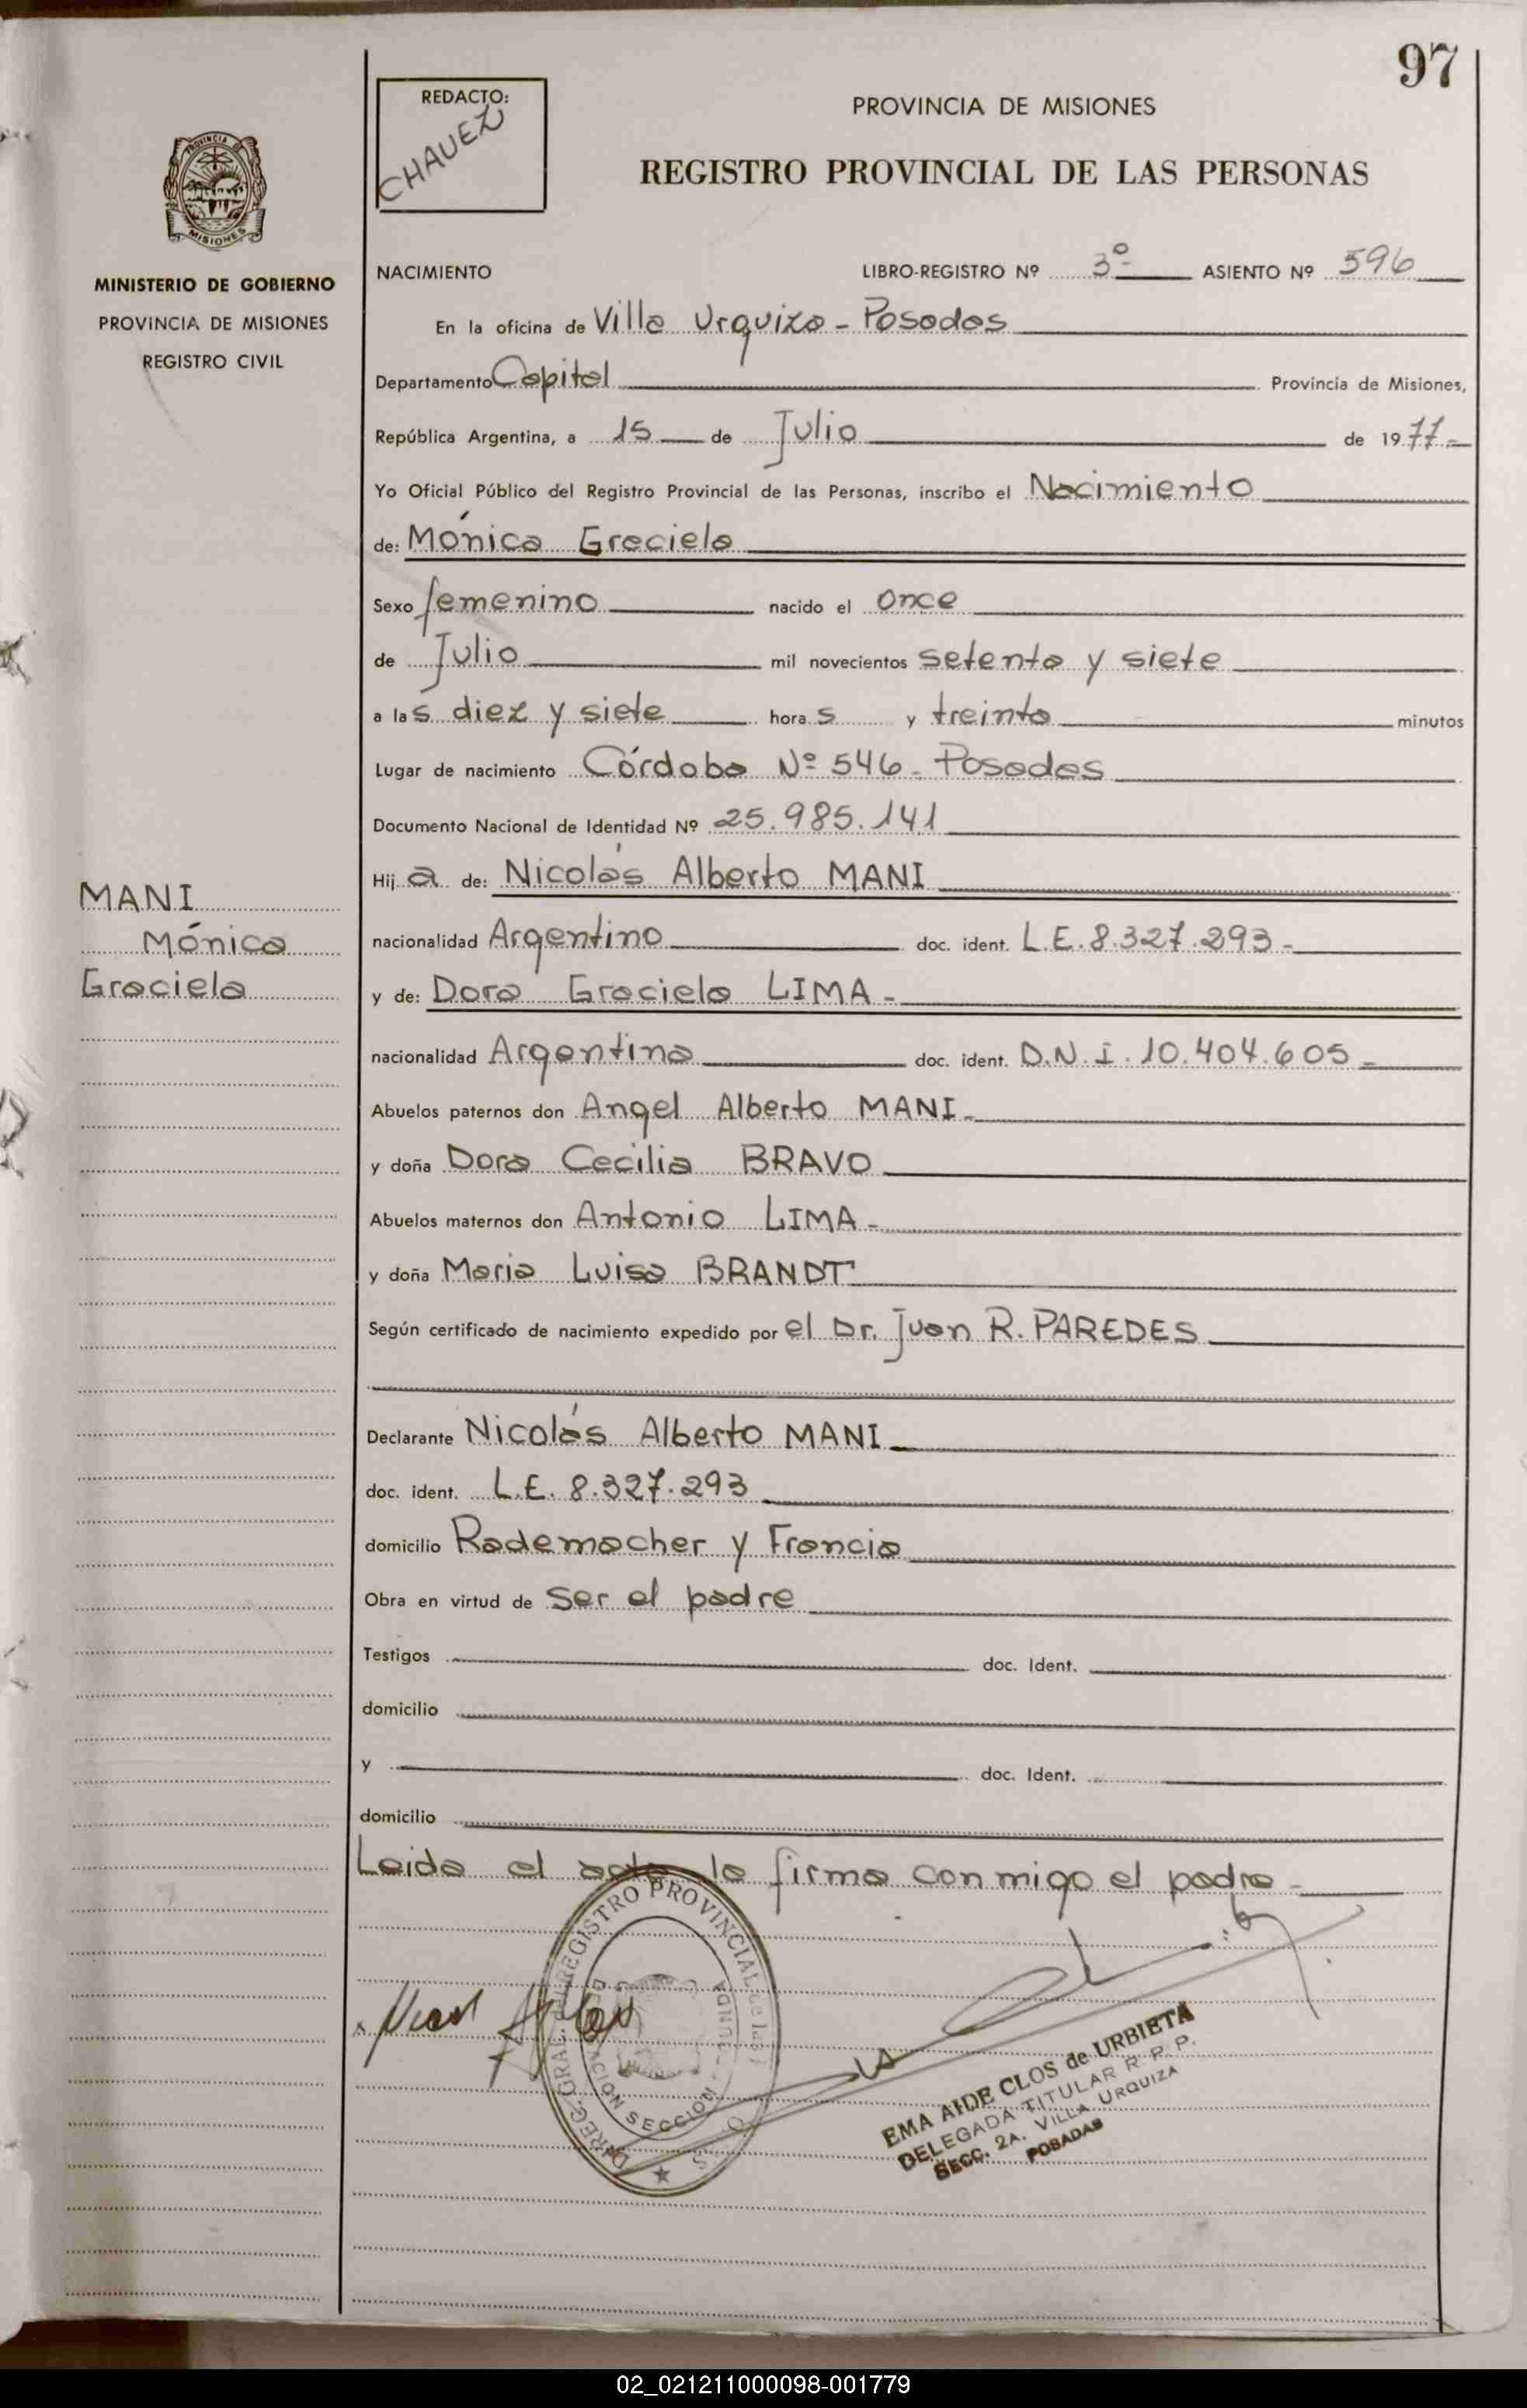 97
REDACTO:
CHAVEZ
PROVINCIA DE MISIONES
REGISTRO PROVINCIAL DE LAS PERSONAS
PROVINCIA DE
MISIONES
MINISTERIO DE GOBIERNO
PROVINCIA DE MISIONES
REGISTRO CIVIL
NACIMIENTO LIBRO-REGISTRO Nº 3º ASIENTO Nº 596
En la oficina de Villa Urquiza - Posadas
Departamento Capital Provincia de Misiones,
República Argentina, a 15 de Julio de 1977.-
Yo Oficial Público del Registro Provincial de las Personas, inscribo el Nacimiento
de: Mónica Graciela
Sexo femenino nacido el once
de Julio mil novecientos setenta y siete
a las diez y siete horas y treinta minutos
Lugar de nacimiento Córdoba Nº 546 - Posadas
Documento Nacional de Identidad Nº 25.985.141
Hija de: Nicolás Alberto MANI
MANI
Mónica
Graciela
nacionalidad Argentino doc. ident. L.E. 8.327.293-
y de: Dora Graciela LIMA-
nacionalidad Argentina doc. ident. D.N.I. 10.404.605-
Abuelos paternos don Angel Alberto MANI-
y doña Dora Cecilia BRAVO
Abuelos maternos don Antonio LIMA-
y doña Maria Luisa BRANDT
Según certificado de nacimiento expedido por el Dr. Juan R. PAREDES
Declarante Nicolás Alberto MANI
doc. ident. L.E. 8.327.293
domicilio Rademacher y Francia
Obra en virtud de ser el padre
Testigos doc. Ident.
domicilio
y doc. Ident.
domicilio
Leida el acta la firma conmigo el padre-
DIREC. GRAL. DEL REGISTRO PROVINCIAL de las P
SECCION
EMA AIDE CLOS de URBIETA
DELEGADA TITULAR R. P. P.
SECC. 2A. VILLA URQUIZA
POSADAS
02_021211000098-001779